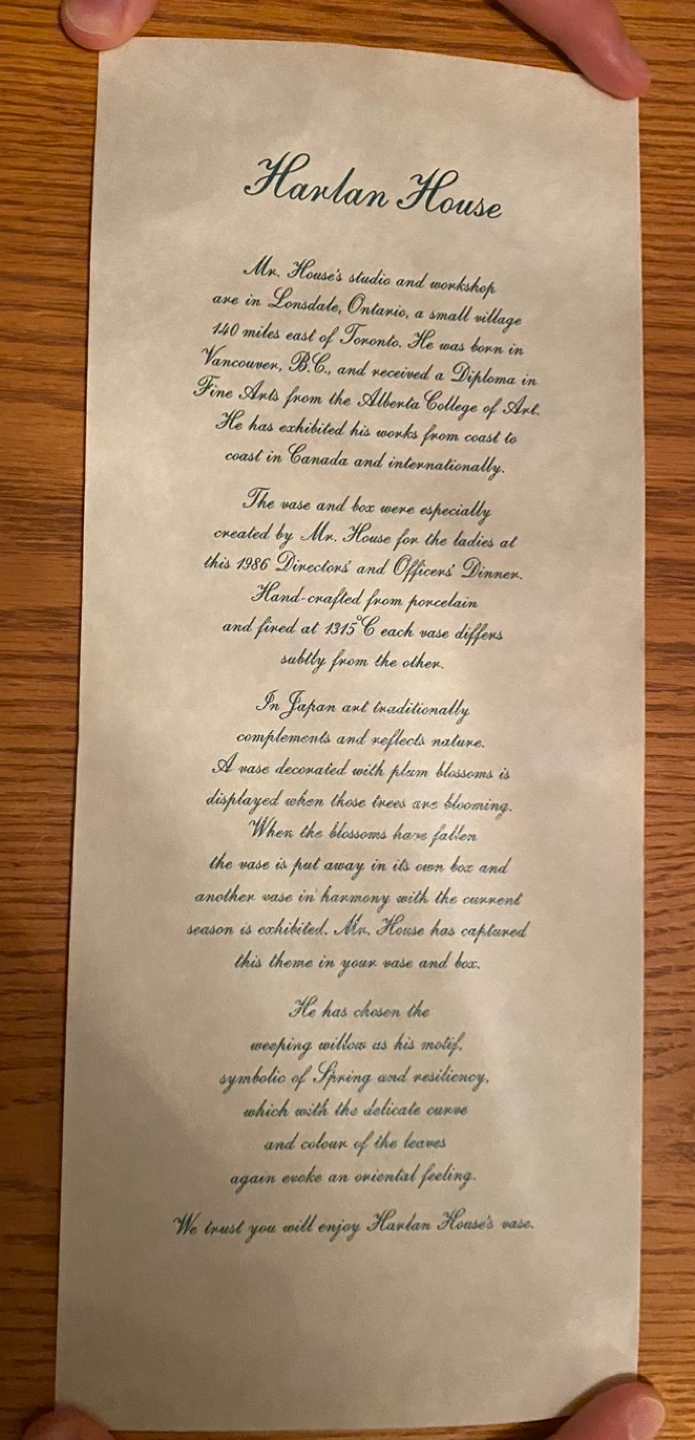 Harlan House
Mr. House's studio and workshop
are in Lonsdale, Ontario, a small village
140 miles east of Toronto. He was born in
Vancouver, B.C., and received a Diploma in
Fine Arts from the Alberta College of Art.
He has exhibited his works from coast to
coast in Canada and internationally.
The vase and box were especially
created by Mr. House for the ladies at
this 1986 Directors' and Officers' Dinner.
Hand-crafted from porcelain
and fired at 1315°C each vase differs
subtly from the other.
In Japan art traditionally
complements and reflects nature.
A vase decorated with plum blossoms is
displayed when those trees are blooming.
When the blossoms have fallen
the vase is put away in its own box and
another vase in harmony with the current
season is exhibited. Mr. House has captured
this theme in your vase and box.
He has chosen the
weeping willow as his motif,
symbolic of Spring and resiliency,
which with the delicate curve
and colour of the leaves
again evoke an oriental feeling.
We trust you will enjoy Harlan House's vase.